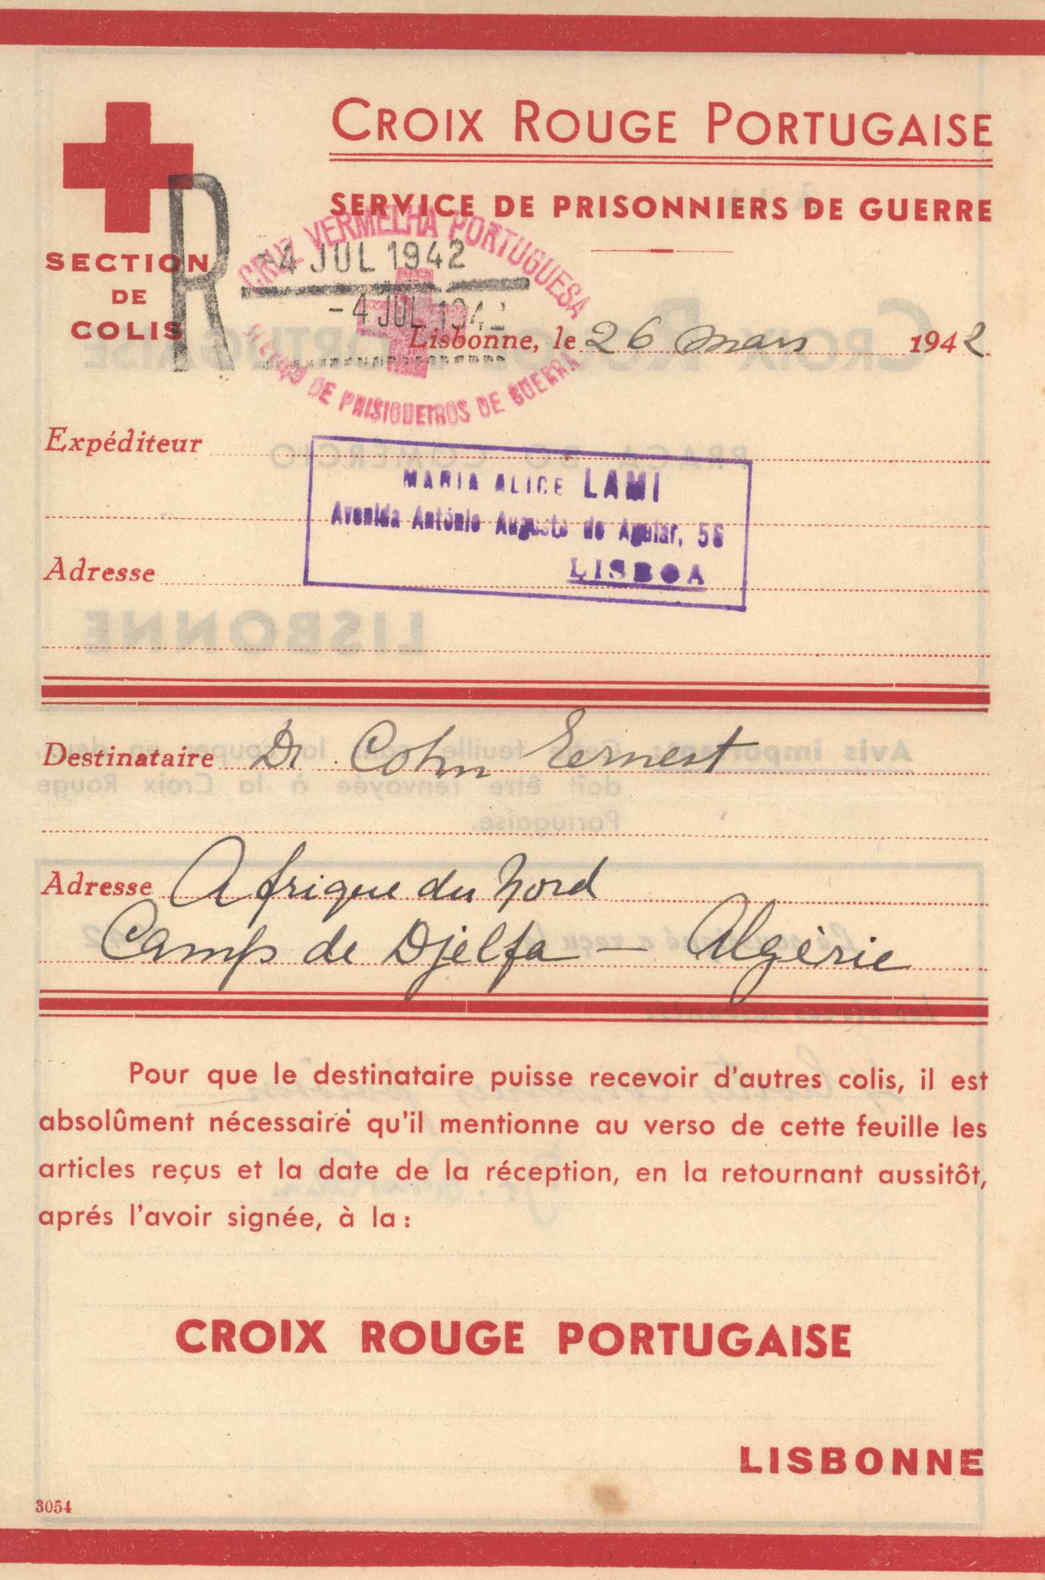 CROIX ROUGE PORTUGAISE
SERVICE DE PRISONNIERS DE GUERRE
SECTION
DE
COLIS
R
CRUZ VERMELHA PORTUGUESA
-4 JUL 1942
-4 JUL 1942
DE PRISIONEIROS DE GUERRA
Lisbonne, le 26 mars 1942
Expéditeur
MARIA ALICE LAMI
Avenida António Augusto de Aguiar, 56
LISBOA
Adresse
Destinataire Dr Cohn Eernest
Adresse Afrique du Nord
Camp de Djelfa — Algérie
Pour que le destinataire puisse recevoir d'autres colis, il est
absolûment nécessaire qu'il mentionne au verso de cette feuille les
articles reçus et la date de la réception, en la retournant aussitôt,
aprés l'avoir signée, à la :
CROIX ROUGE PORTUGAISE
LISBONNE
3054